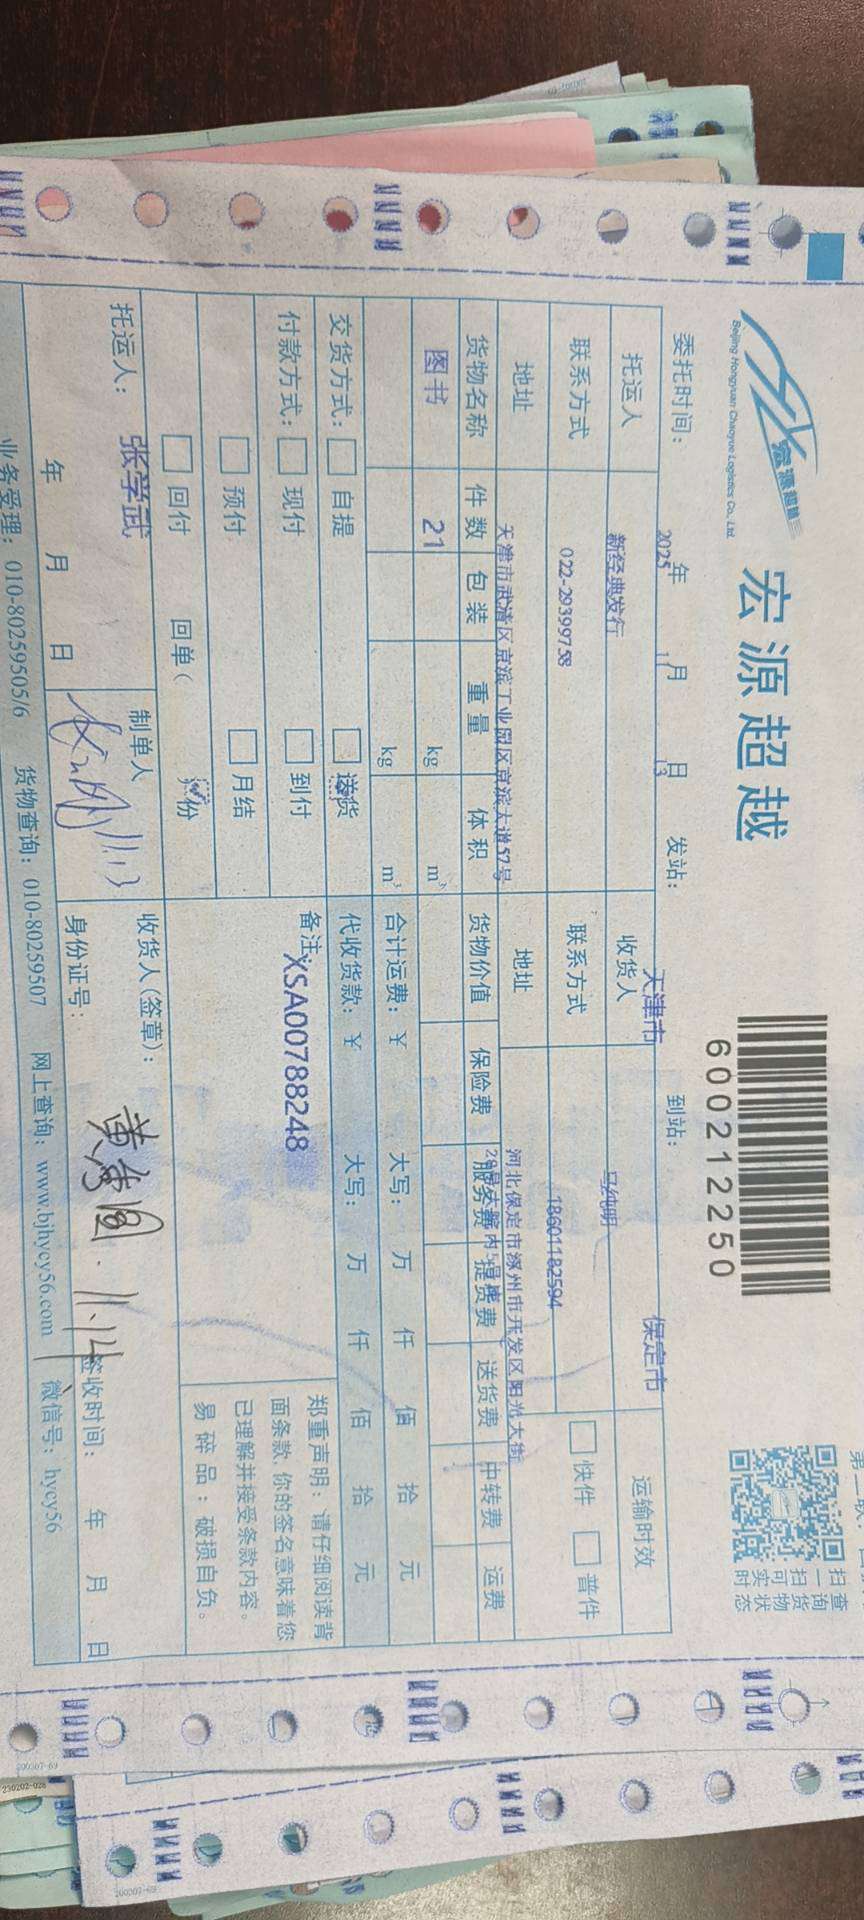 宏源超越
宏源超越
Beijing Hongyuan Chaoyue Logistics Co., Ltd.
600212250
扫一扫查
询货物
可实时
状态
委托时间： 2025年 11月 13日 发站： 天津市 到站： 保定市
托运人 新经典发行 收货人 马纯明 运输时效
联系方式 022-29399758 联系方式 18601182594 快件 普件
地址 天津市武清区京滨工业园区京滨大道57号 地址 河北保定市涿州市开发区阳光大街
货物名称 件数 包装 重量 体积 货物价值 保险费 服务费 提货费 送货费 中转费 运费
图书 21 kg m³
kg m³ 合计运费：￥ 大写： 万 仟 佰 拾 元
交货方式： 自提 送货 代收货款：￥ 大写： 万 仟 佰 拾 元
付款方式： 现付 到付 备注： XSA00788248
预付 月结
回付 回单（ 份
郑重声明：请仔细阅读背
面条款，你的签名意味着您
已理解并接受条款内容。
易碎品：破损自负。
托运人： 张学武 制单人 11.13 收货人(签章)： 黄秀圆 11.14
年 月 日 身份证号： 签收时间： 年 月 日
业务受理：010-80259505/6 货物查询：010-80259507 网上查询：www.bjhycy56.com 微信号：hycy56
200307-69
230202-028
200307-69